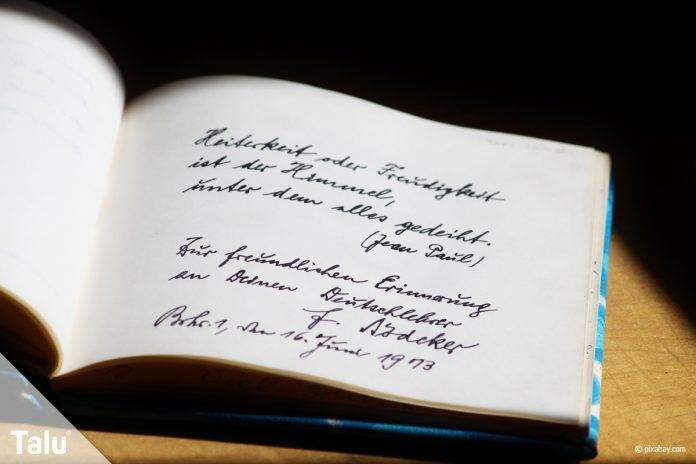 Heiterkeit oder Freudigkeit
ist der Himmel,
unter dem alles gedeiht.
(Jean Paul)
Zur freundlichen Erinnerung
an Deinen Deutschlehrer
F. Bödeker
den 16. Juni 1973
Talu
© pixabay.com